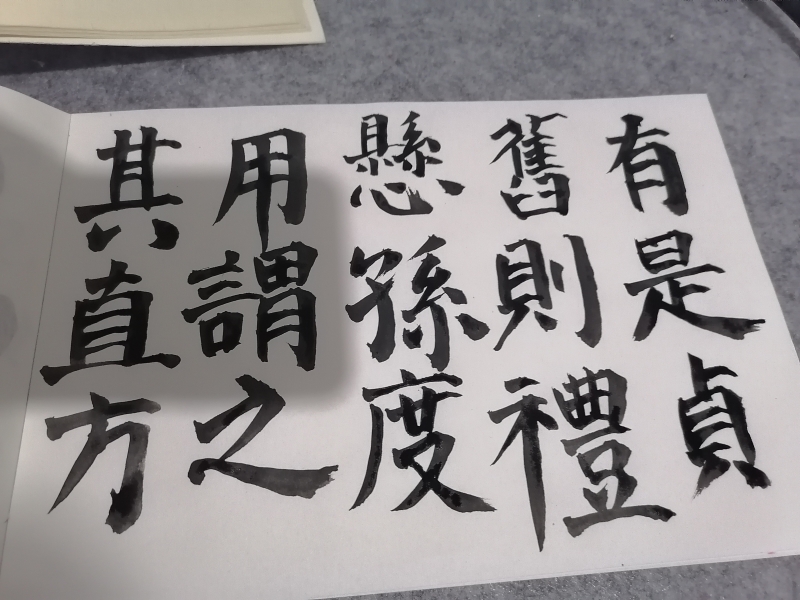 有是貞
舊則禮
懸孫度
用謂之
其直方